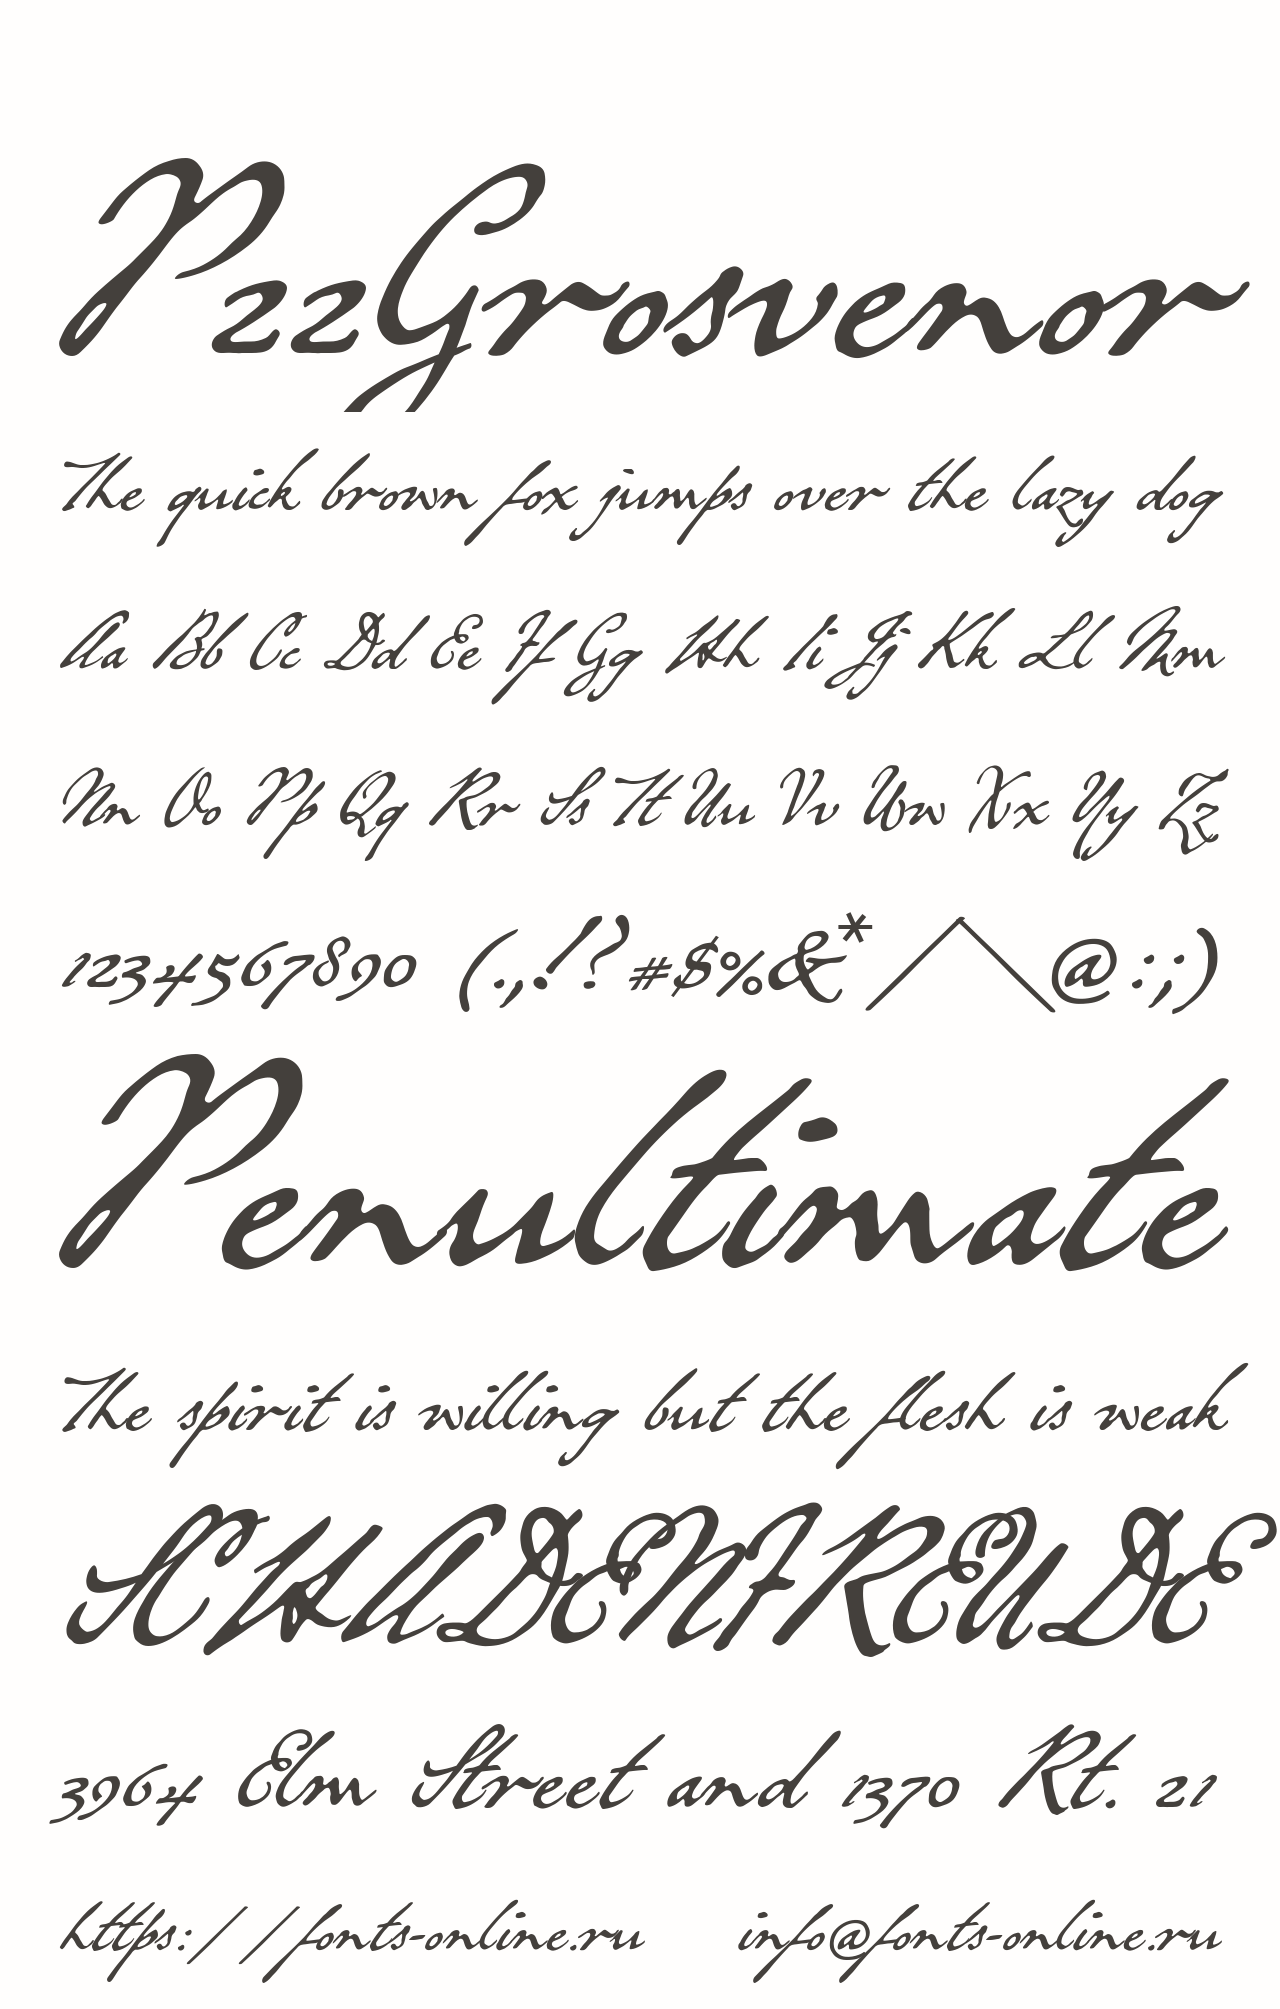 P22Grosvenor
The quick brown fox jumps over the lazy dog
Aa Bb Cc Dd Ee Ff Gg Hh Ii Jj Kk Ll Mm
Nn Oo Pp Qq Rr Ss Tt Uu Vv Ww Xx Yy Zz
1234567890 (.,!? #$%&* /\ @:;)
Penultimate
The spirit is willing but the flesh is weak
SCHADENFREUDE
3964 Elm Street and 1370 Rt. 21
https://fonts-online.ru info@fonts-online.ru